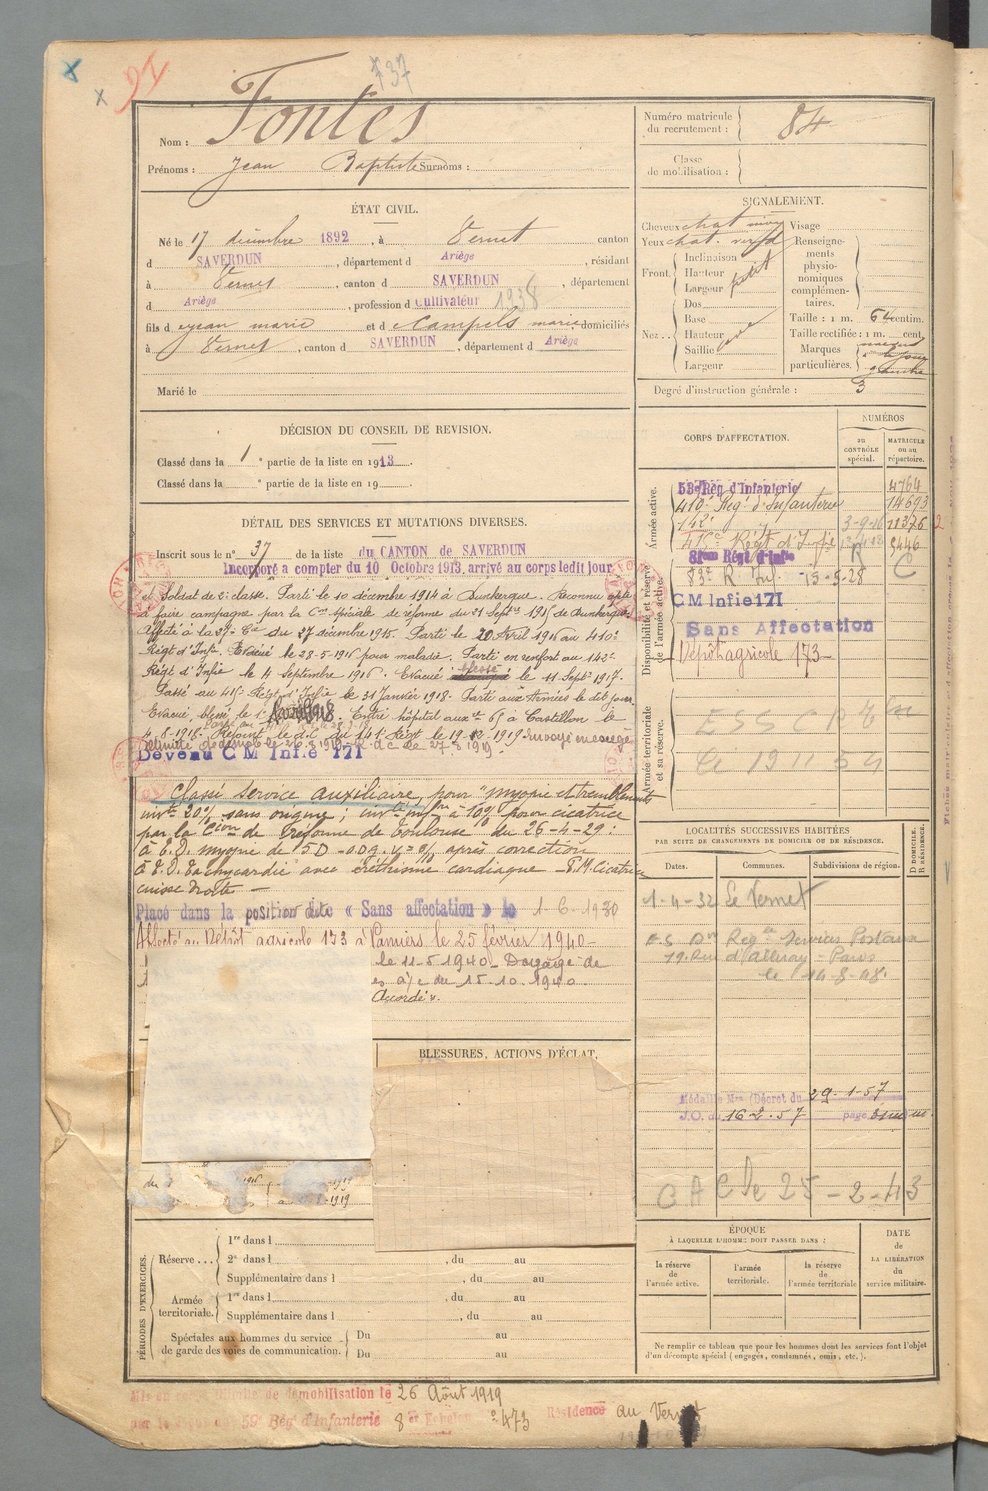 737
Nom : Fontes
Prénoms : Jean Baptiste Surnoms :
ÉTAT CIVIL.
Né le 17 décembre 1892, à Vernet canton
d SAVERDUN, département d Ariège, résidant
à Vernet, canton d SAVERDUN, département
d Ariège, profession d Cultivateur 1938
fils d Jean marie et d Campels marie domiciliés
à Vernet, canton d SAVERDUN, département d Ariège
Marié le
DÉCISION DU CONSEIL DE REVISION.
Classé dans la 1e partie de la liste en 1913.
Classé dans la e partie de la liste en 19
DÉTAIL DES SERVICES ET MUTATIONS DIVERSES.
Inscrit sous le n° 37 de la liste du CANTON de SAVERDUN
Incorporé a compter du 10 Octobre 1913, arrivé au corps ledit jour
et Soldat de 2e classe. Parti le 10 décembre 1914 à Dunkerque. Reconnu apte
à faire campagne par la Con spéciale de réforme du 21 Septre 1915 de Dunkerque
Affecté à la 27e Cie du 27 décembre 1915. Parti le 20 Avril 1916 au 410e
Régt d'Infie. Evacué le 28-5-1916 pour maladie. Parti en renfort au 142e
Régt d'Infie le 4 Septembre 1916. Evacué blessé le 11 Sept 1917.
Passé au 415e Régt d'Infie le 31 Janvier 1918. Parti aux Armées le dit jour
Evacué, blessé le 1er 1918. Entré hôpital auxre 65 à Castillon le
4-8-1918. Rejoint le d.C. du 141e Régt le 19-12-1919 Envoyé en congé
illimité de démob le 26.8.1919 27.8.1919.
Devenu C M Infie 171
Classé service auxiliaire, pour "myopie et tremblements
invté 20% sans origine, invté infre à 10% pour cicatrice
par la Cion de réforme de Toulouse du 26-4-29 :
à E.D. myopie de 5D - ODG. V = 0/0 après correction
à E.D. Tachycardie avec éréthisme cardiaque - P.M. Cicatrice
cuisse droite -
Placé dans la position dite « Sans affectation » le 1-6-1930
Affecté au Dépôt agricole 173 à Pamiers le 25 février 1940-
le 11-5-1940_ Dégagé de
es a/c du 15.10.1940.
Accordé v.
BLESSURES, ACTIONS D'ÉCLAT,
du
1916
1919
au 8-1919
PÉRIODES D'EXERCICES.
Réserve ...
1re dans l
2e dans l , du au
Supplémentaire dans l , du au
Armée territoriale.
1re dans l , du au
Supplémentaire dans l , du au
Spéciales aux hommes du service de garde des voies de communication.
Du au
Du au
Numéro matricule du recrutement : 84
Classe de mobilisation :
SIGNALEMENT.
Cheveux chat
Yeux chat. verd
Front.
Inclinaison
Hauteur
Largeur petit
Nez ..
Dos
Base
Hauteur
Saillie
Largeur
Visage
Renseignements physionomiques complémentaires.
Taille : 1 m. 64 centim.
Taille rectifiée : 1 m. cent.
Marques particulières.
Degré d'instruction générale : 3
CORPS D'AFFECTATION.
NUMÉROS
au CONTRÔLE spécial.
MATRICULE ou au répertoire.
Armée active.
53e Rég d'Infanterie 4764
410e Régt d'Infanterie 14693
142e 3-9-16 11376 2
415e Régt d'Infie 9446
Disponibilité et réserve de l'armée active.
81eme Régt d'Infie R
83e R Inf. 15-5-28 C
C M Infie 171
Sans Affectation
Dépôt agricole 173
Armée territoriale et sa réserve.
LOCALITÉS SUCCESSIVES HABITÉES
PAR SUITE DE CHANGEMENTS DE DOMICILE OU DE RÉSIDENCE.
Dates. Communes. Subdivisions de région. D DOMICILE. R RÉSIDENCE.
1-4-32 Le Vernet
E.S. Dn Regle Services Postaux
19. Rue d'Alleray - Paris
le 14-8-48.
Médaille Mre (Décret du 29-1-57
J.O. du 16-2-57 page
C A C le 25-2-43
ÉPOQUE
À LAQUELLE L'HOMME DOIT PASSER DANS :
la réserve de l'armée active.
l'armée territoriale.
la réserve de l'armée territoriale
DATE de LA LIBÉRATION du service militaire.
Ne remplir ce tableau que pour les hommes dont les services font l'objet
d'un décompte spécial (engagés, condamnés, omis, etc.).
Mis en congé illimité de démobilisation le 26 Août 1919
par le dépôt du 59e Rég d'Infanterie 8e Echelon 2473 Résidence au Vernet